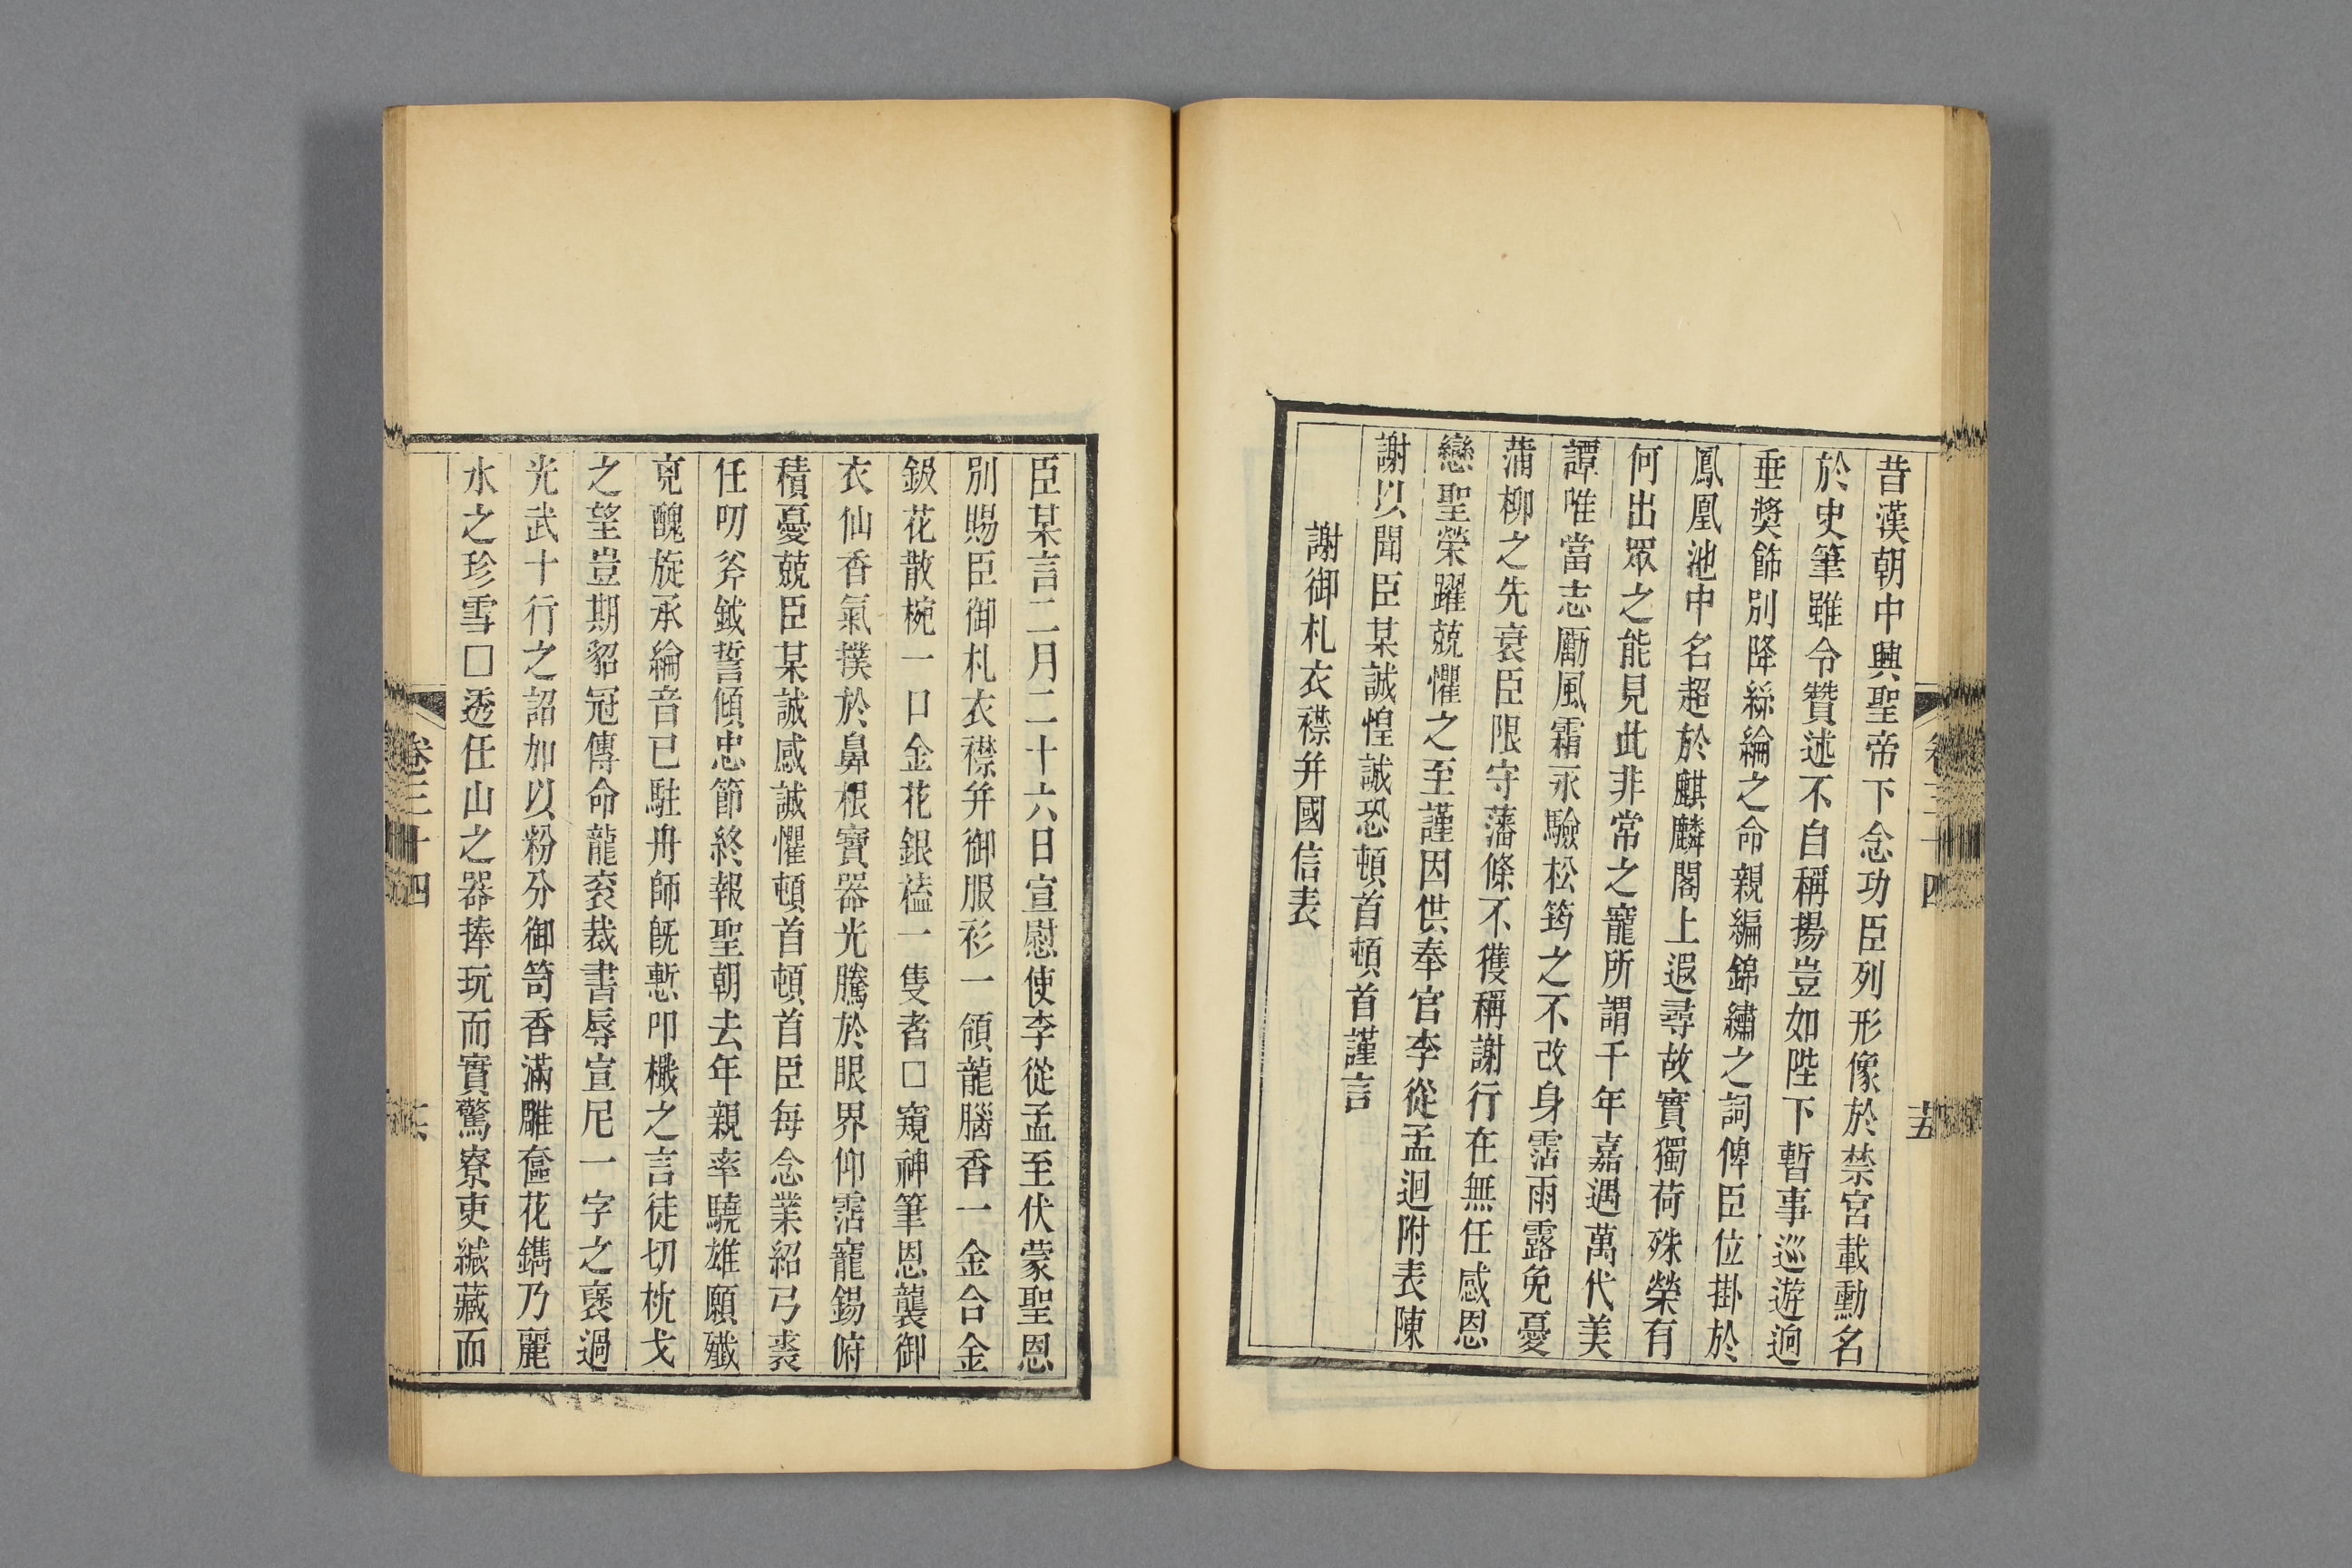 昔漢朝中興聖帝下念功臣列形像於禁宮載勳名
於史筆雖令贊述不自稱揚豈如陛下暫事巡遊逈
垂奬飾別降絲綸之命親編錦繡之詞俾臣位掛於
鳳凰池中名超於麒麟閣上遐尋故實獨荷殊榮有
何出眾之能見此非常之寵所謂千年嘉遇萬代美
譚唯當志勵風霜永驗松筠之不改身霑雨露免憂
蒲柳之先衰臣限守藩條不獲稱謝行在無任感恩
戀聖榮躍兢懼之至謹因供奉官李從孟迴附表陳
謝以聞臣某誠惶誠恐頓首頓首謹言
謝御札衣襟幷國信表
卷三十四
十五
臣某言二月二十六日宣慰使李從孟至伏蒙聖恩
別賜臣御札衣襟幷御服衫一領龍腦香一金合金
鈒花散椀一口金花銀榼一隻者□窺神筆恩襲御
衣仙香氣撲於鼻根寶器光騰於眼界仰霑寵錫俯
積憂兢臣某誠感誠懼頓首頓首臣每念業紹弓裘
任叨斧鉞誓傾忠節終報聖朝去年親率驍雄願殱
兇醜旋承綸音已駐舟師旣慙叩檝之言徒切枕戈
之望豈期貂冠傳命龍袞裁書辱宣尼一字之襃過
光武十行之詔加以粉分御笥香滿雕奩花鐫乃麗
水之珍雪□透任山之器捧玩而實驚寮吏緘藏而
卷三十四
十六